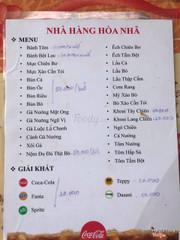 NHÀ HÀNG HÒA NHÃ
MENU
- Bánh Tôm
- Bánh Bột Lọc
- Mực Chiên Bơ
- Mực Xào Cần Tỏi
- Bún Cá
- Bún Ốc
- Bún Riêu
- Bún Bò
- Gà Nướng Mật Ong
- Gà Nướng Ngũ Vị
- Gà Luộc Lá Chanh
- Cánh Gà Nướng
- Xôi Gà
- Nộm Đu Đủ Thịt Bò
- Ếch Chiên Bơ
- Ếch Tẩm Bột
- Lẩu Cá
- Lẩu Bò
- Lẩu Thập Cẩm
- Cơm Rang
- Mỳ Xào Bò
- Bò Xào Cần Tỏi
- Khoai Tây Chiên
- Khoai Lang Chiên
- Ngô Chiên
- Cá Nướng
- Tôm Nướng
- Tôm Hấp Sả
- Tôm Tẩm Bột
GIẢI KHÁT
Coca-Cola
Fanta
Sprite
Teppy
Dasani
Coca-Cola